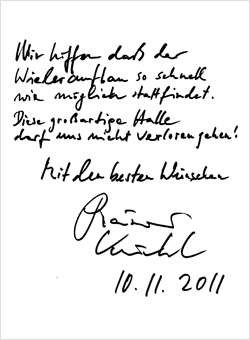 Wir hoffen daß der
Wiederaufbau so schnell
wie möglich stattfindet.
Diese großartige Halle
darf uns nicht verloren gehen!
Mit den besten Wünschen
Rainer
10.11.2011